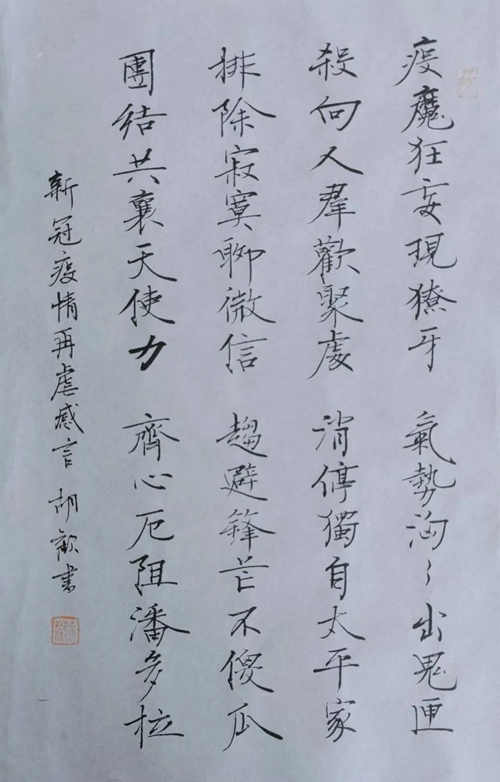 疫魔狂妄現獠牙 氣勢洶〻出鬼匣
殺向人羣歡聚處 消停獨自太平家
排除寂寞聊微信 趨避鋒芒不傻瓜
團結共襄天使力 齊心厄阻潘多拉
新冠疫情再虐感言 胡書